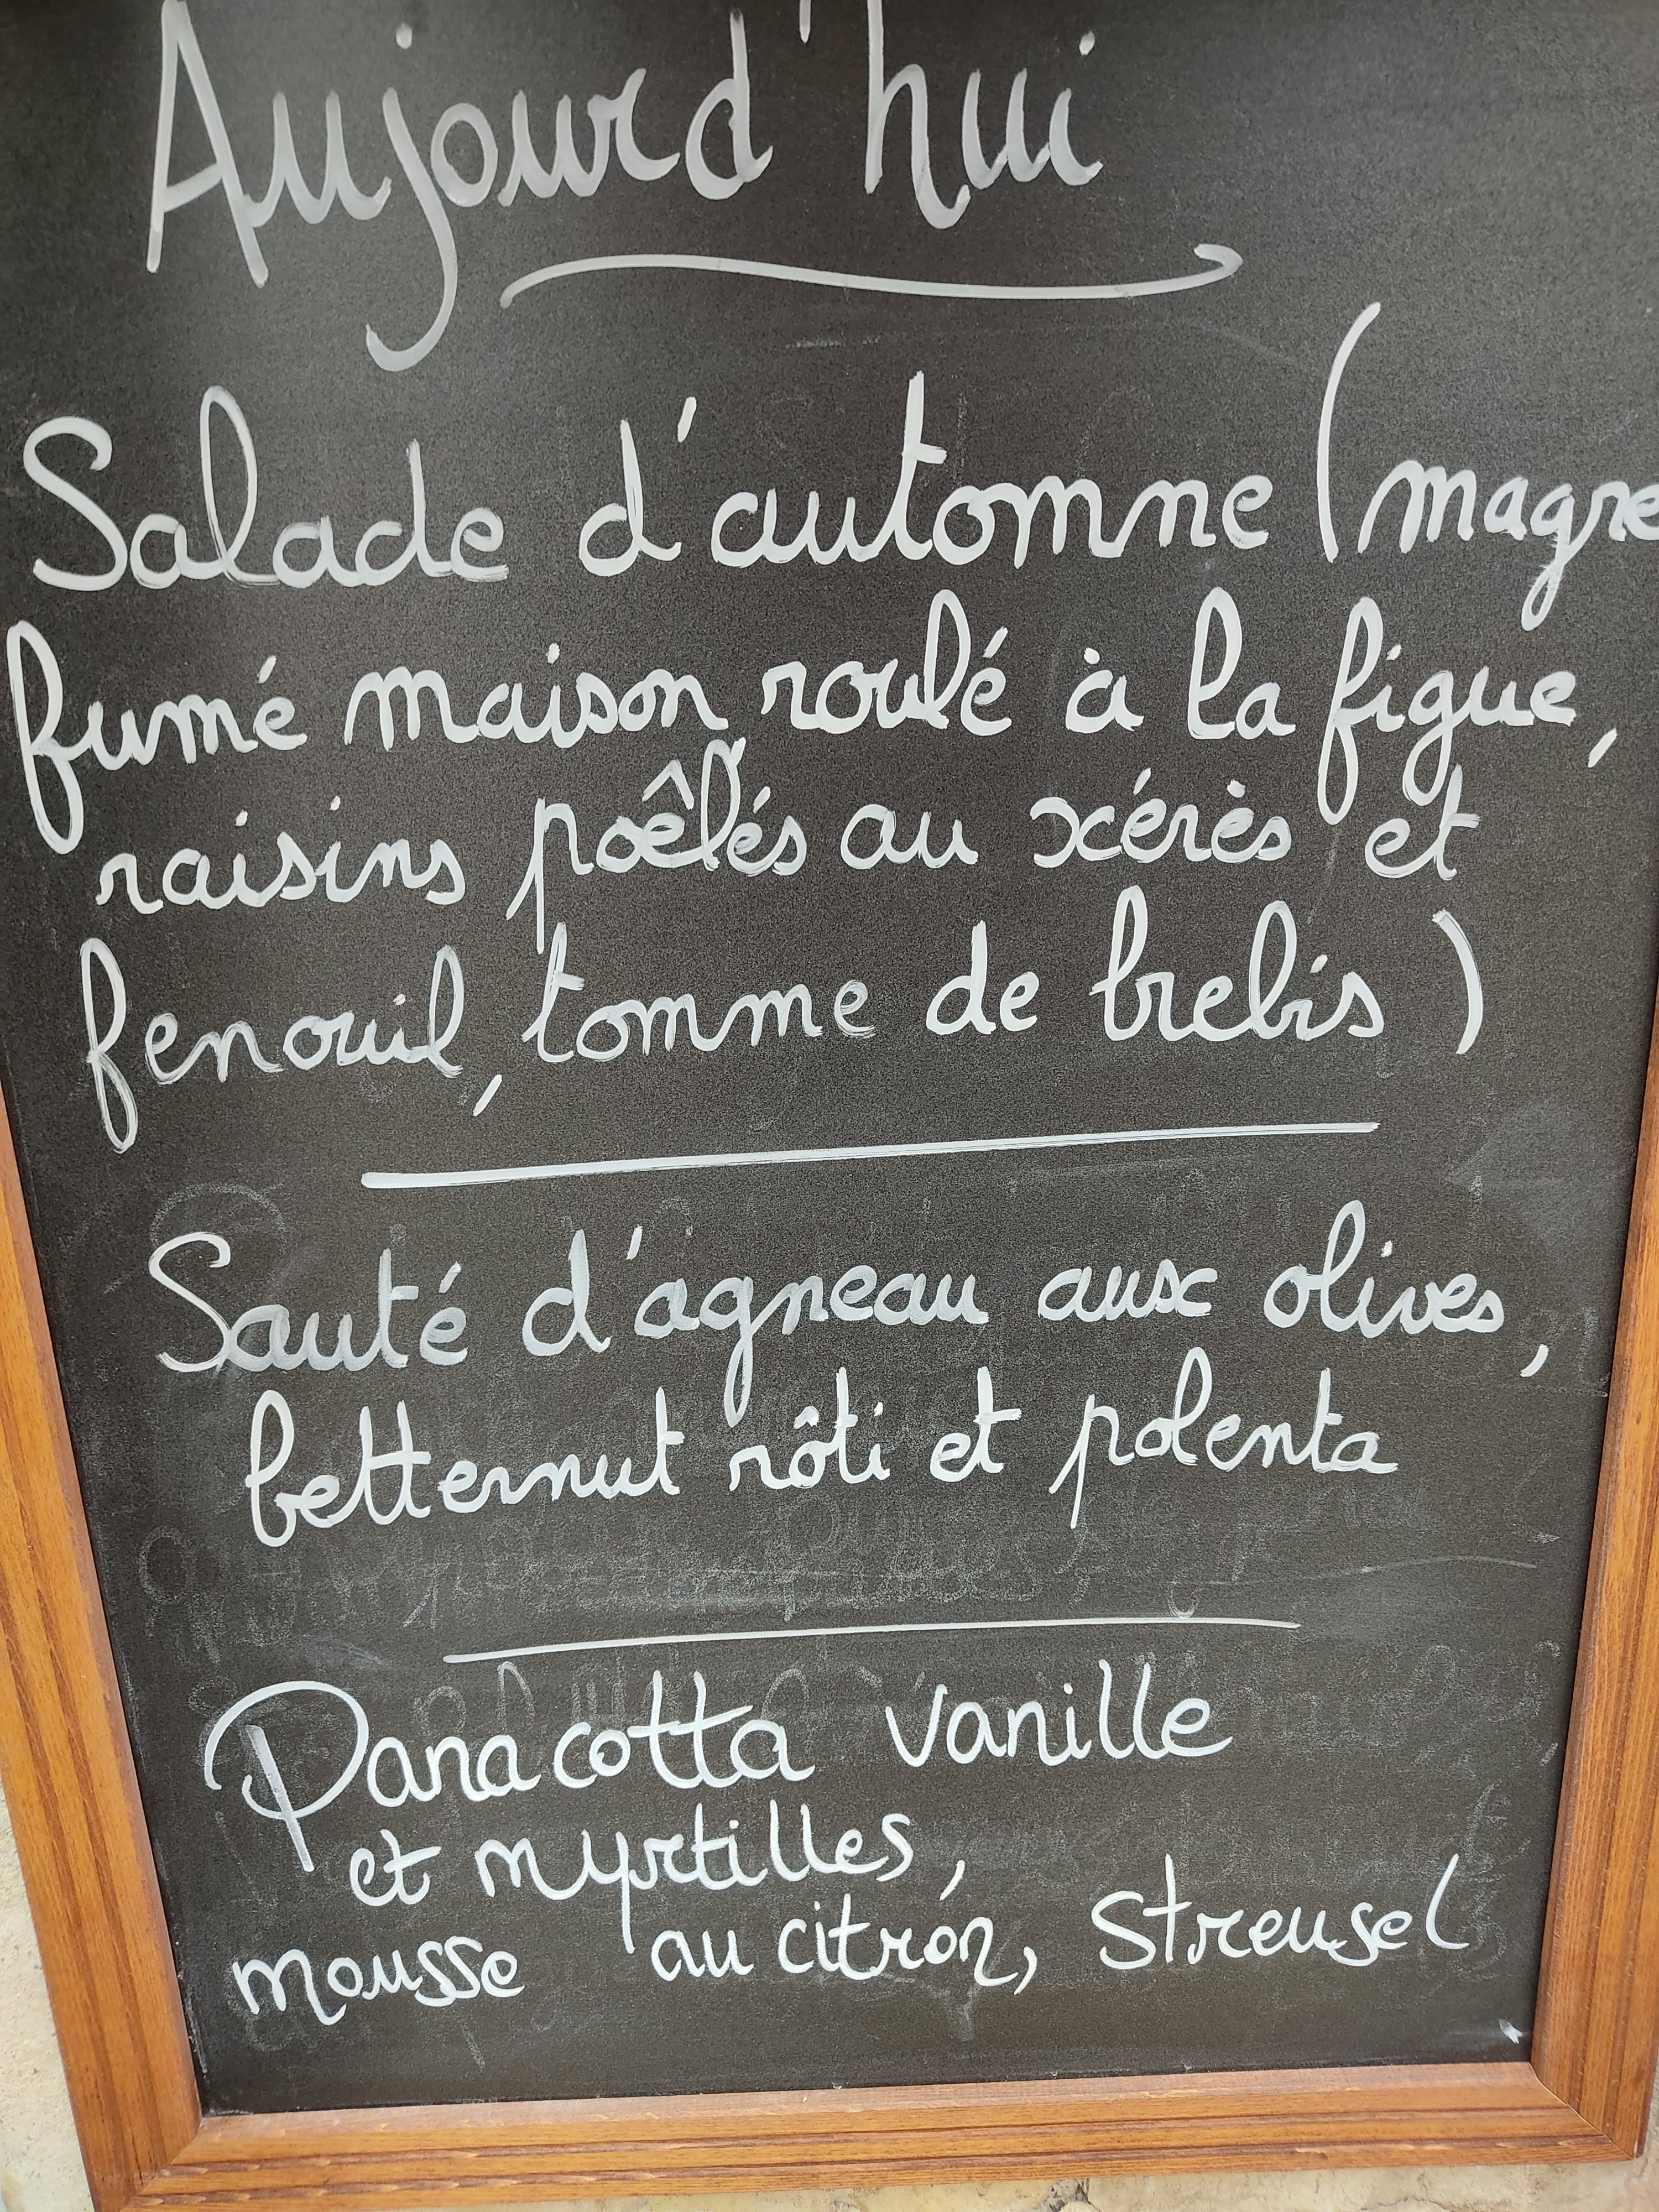 Aujourd'hui
Salade d'automne (magre
fumé maison roulé à la figue,
raisins poêlés au xérès et
fenouil, tomme de brebis)
Sauté d'agneau aux olives,
betternut rôti et polenta
Panacotta vanille
et myrtilles,
mousse au citron, Streusel